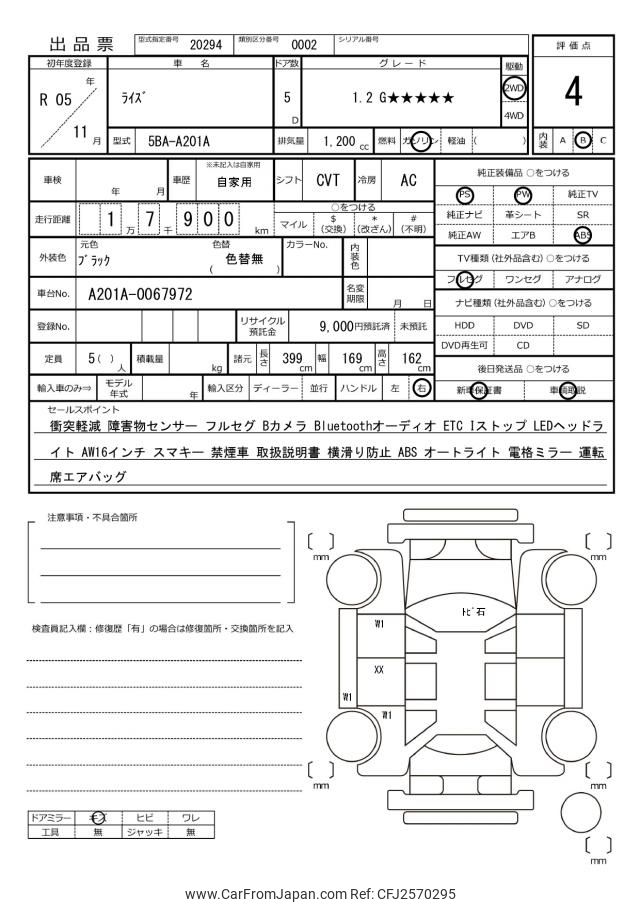 出品票
型式指定番号 20294 類別区分番号 0002 シリアル番号
評価点
4
内装 A B C
初年度登録 車名 ドア数 グレード 駆動
R 05 年 11 月
ﾗｲｽﾞ
5 D
1.2 G★★★★★
2WD
4WD
型式 5BA-A201A 排気量 1,200 cc 燃料 ガソリン 軽油 ( )
車検 年 月 車歴 ※未記入は自家用 自家用 シフト CVT 冷房 AC
走行距離 1 万 7 千 9 0 0 km
○をつける
マイル $(交換) *(改ざん) #(不明)
外装色 元色 ﾌﾞﾗｯｸ 色替 ( 色替無 ) カラーNo. 内装色
車台No. A201A-0067972 名変期限 月 日
登録No. リサイクル預託金 9,000円預託済 未預託
定員 5( )人 積載量 kg 諸元 長さ 399 cm 幅 169 cm 高さ 162 cm
輸入車のみ⇒ モデル年式 年 輸入区分 ディーラー 並行 ハンドル 左 右
純正装備品 ○をつける
PS PW 純正TV
純正ナビ 革シート SR
純正AW エアB ABS
TV種類(社外品含む) ○をつける
フルセグ ワンセグ アナログ
ナビ種類(社外品含む) ○をつける
HDD DVD SD
DVD再生可 CD
後日発送品 ○をつける
新車保証書 車輌取説
セールスポイント
衝突軽減 障害物センサー フルセグ Bカメラ Bluetoothオーディオ ETC Iストップ LEDヘッドラ
イト AW16インチ スマキー 禁煙車 取扱説明書 横滑り防止 ABS オートライト 電格ミラー 運転
席エアバッグ
注意事項・不具合箇所
検査員記入欄：修復歴「有」の場合は修復箇所・交換箇所を記入
[ ] mm
[ ] mm
ﾄﾋﾞ石
W1
XX
W1
W1
[ ] mm
[ ] mm
[ ] mm
ドアミラー キズ ヒビ ワレ
工具 無 ジャッキ 無
www.CarFromJapan.com Ref: CFJ2570295